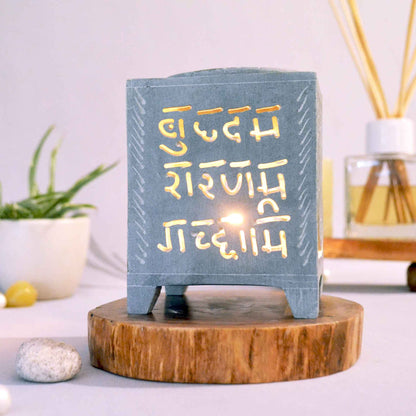 बुद्दम
शरणम्
गच्छामि